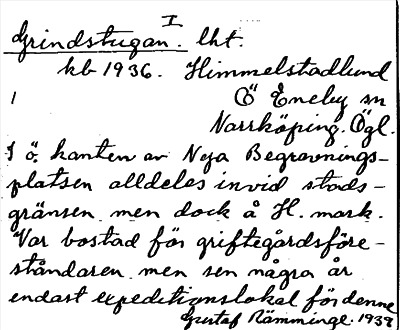 I
Grindstugan. lht.
kb 1936. Himmelstadlund
1 Ö Eneby sn
Norrköping. Ögl.
I ö. kanten av Nya Begravnings-
platsen alldeles invid stads-
gränsen men dock å H. mark.
Var bostad för griftegårdsföre-
ståndaren men sen några år
endast expeditionslokal för denne
Gustaf Rämminge. 1937